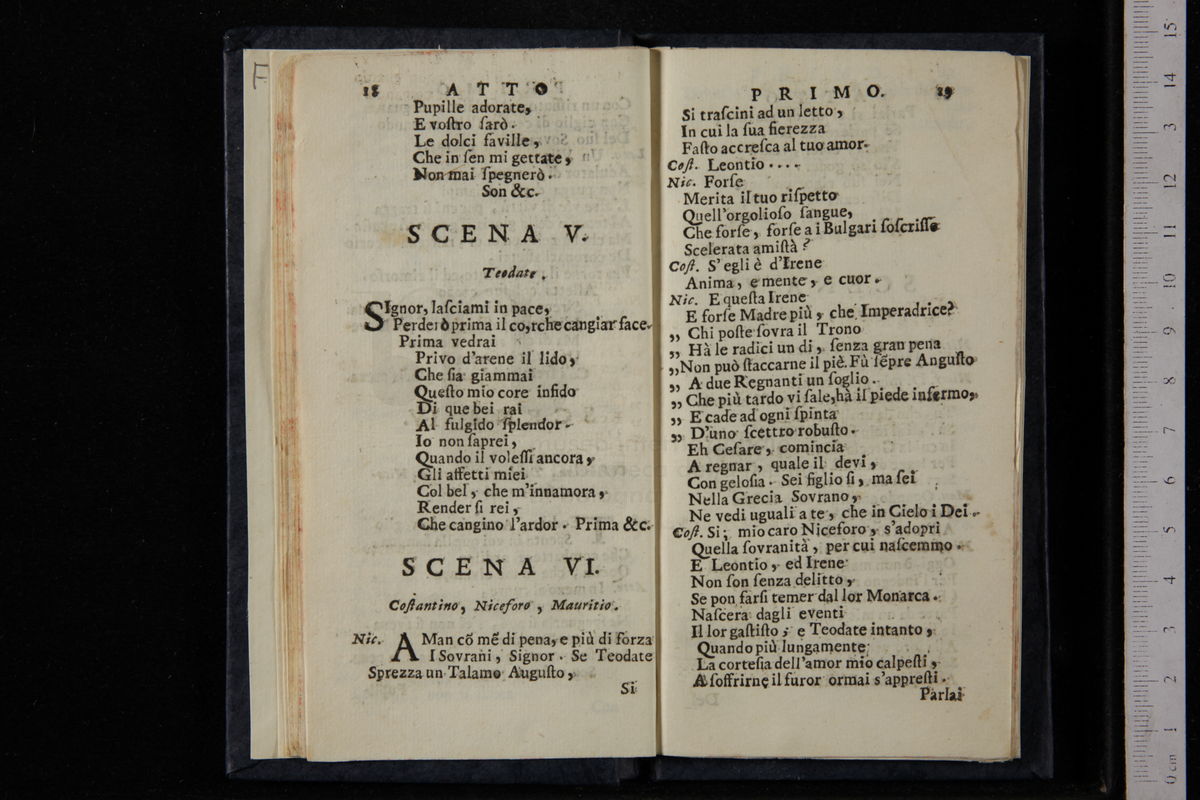 F
18 ATTO
Pupille adorate,
E voſtro ſarò.
Le dolci faville,
Che in ſen mi gettate,
Non mai ſpegnerò.
Son &c.
SCENA V.
Teodate.
SIgnor, laſciami in pace,
Perderò prima il co,rche cangiar face.
Prima vedrai
Privo d'arene il lido,
Che ſia giammai
Queſto mio core infido
Di que bei rai
Al fulgido ſplendor.
Io non ſaprei,
Quando il voleſſi ancora,
Gli affetti miei
Col bel, che m'innamora,
Render ſi rei,
Che cangino l'ardor. Prima &c.
SCENA VI.
Coſtantino, Niceforo, Mauritio.
Nic. AMan cõ mẽ di pena, e più di forza
I Sovrani, Signor. Se Teodate
Sprezza un Talamo Auguſto,
Si
PRIMO. 19
Si traſcini ad un letto,
In cui la ſua fierezza
Faſto accreſca al tuo amor.
Coſt. Leontio....
Nic. Forſe
Merita il tuo riſpetto
Quell'orgolioſo ſangue,
Che forſe, forſe a i Bulgari ſoſcriſſe
Scelerata amiſtà?
Coſt. S'egli è d'Irene
Anima, e mente, e cuor.
Nic. E queſta Irene
E forſe Madre più, che Imperadrice?
„ Chi poſte ſovra il Trono
„ Hà le radici un di, ſenza gran pena
„Non può ſtaccarne il piè. Fù ſẽpre Anguſto
„ A due Regnanti un ſoglio.
„ Che più tardo vi ſale,hà il piede infermo,
„ E cade ad ogni ſpinta
„ D'uno ſcettro robuſto.
Eh Ceſare, comincia
A regnar, quale il devi,
Con geloſia. Sei figlio ſi, ma ſei
Nella Grecia Sovrano,
Ne vedi uguali a te, che in Cielo i Dei.
Coſt. Si; mio caro Niceforo, s'adopri
Quella ſovranità, per cui naſcemmo.
E Leontio, ed Irene
Non ſon ſenza delitto,
Se pon farſi temer dal lor Monarca.
Naſcerà dagli eventi
Il lor gaſtiſto; e Teodate intanto,
Quando più lungamente
La corteſia dell'amor mio calpeſti,
A ſoffrirne il furor ormai s'appreſti.
Parlai
0 cm 1 2 3 4 5 6 7 8 9 10 11 12 3 14 15